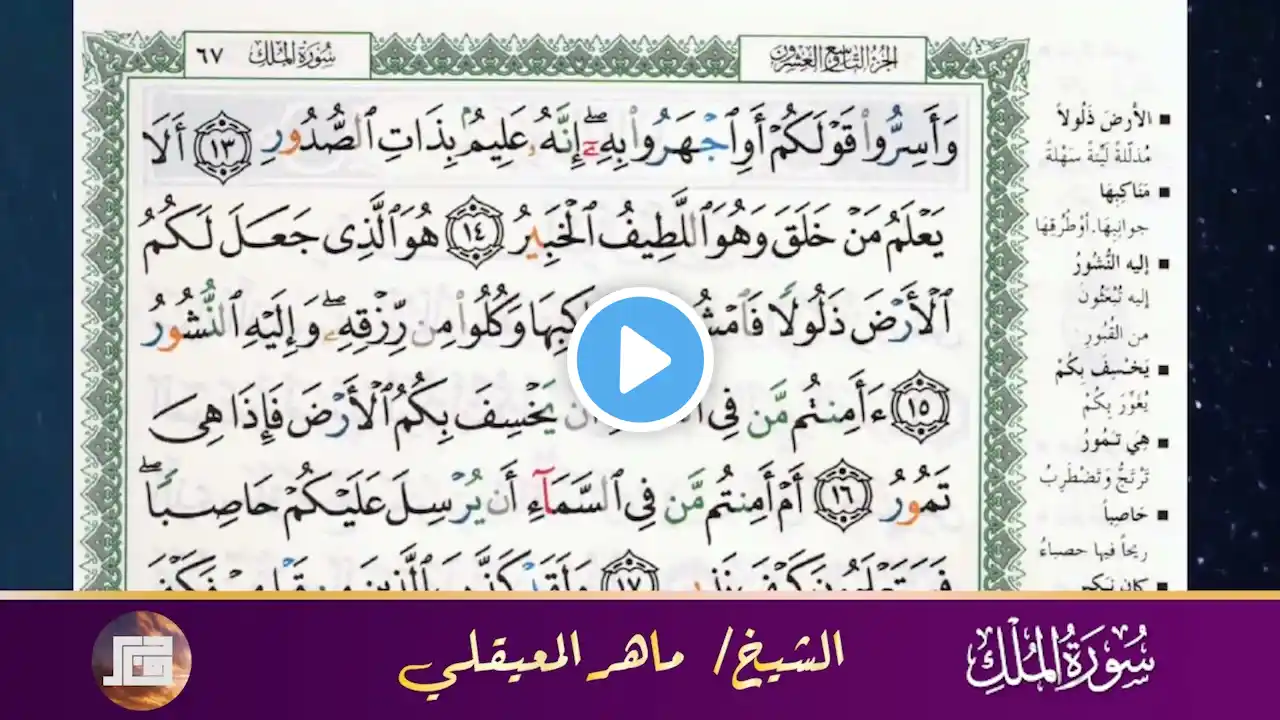 الجزء التاسع والعشرون
سورة الملك ٦٧
وَأَسِرُّوا۟ قَوْلَكُمْ أَوِ ٱجْهَرُوا۟ بِهِۦٓ ۖ إِنَّهُۥ عَلِيمٌۢ بِذَاتِ ٱلصُّدُورِ ١٣ أَلَا
يَعْلَمُ مَنْ خَلَقَ وَهُوَ ٱللَّطِيفُ ٱلْخَبِيرُ ١٤ هُوَ ٱلَّذِى جَعَلَ لَكُمُ
ٱلْأَرْضَ ذَلُولًا فَٱمْشُ كِبِهَا وَكُلُوا۟ مِن رِّزْقِهِۦ ۖ وَإِلَيْهِ ٱلنُّشُورُ
١٥ ءَأَمِنتُم مَّن فِى أَن يَخْسِفَ بِكُمُ ٱلْأَرْضَ فَإِذَا هِىَ
تَمُورُ ١٦ أَمْ أَمِنتُم مَّن فِى ٱلسَّمَآءِ أَن يُرْسِلَ عَلَيْكُمْ حَاصِبًا ۖ
١٧
الأرض ذلولاً
مذللة لينة سهلة
مناكبها
جوانبها أو طرقها
إليه النشور
إليه تبعثون
من القبور
يخسف بكم
يغور بكم
هي تمور
ترتج وتضطرب
حاصباً
ريحاً فيها حصباء
كان نكير
سورة الملك
الشيخ/ ماهر المعيقلي